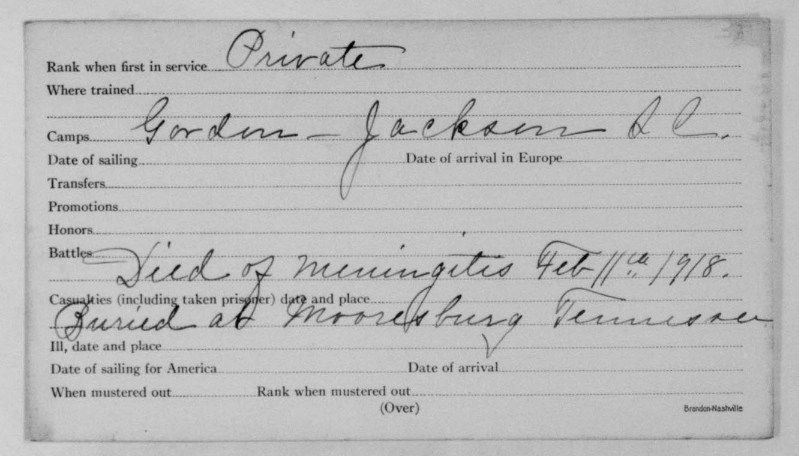 Rank when first in service Private
Where trained
Camps Gordon – Jackson S C.
Date of sailing Date of arrival in Europe
Transfers
Promotions
Honors
Battles
Died of meningitis Feb 11th 1918.
Casualties (including taken prisoner) date and place
Buried at Mooresburg Tennessee
Ill, date and place
Date of sailing for America Date of arrival
When mustered out Rank when mustered out
(Over) Brandon-Nashville